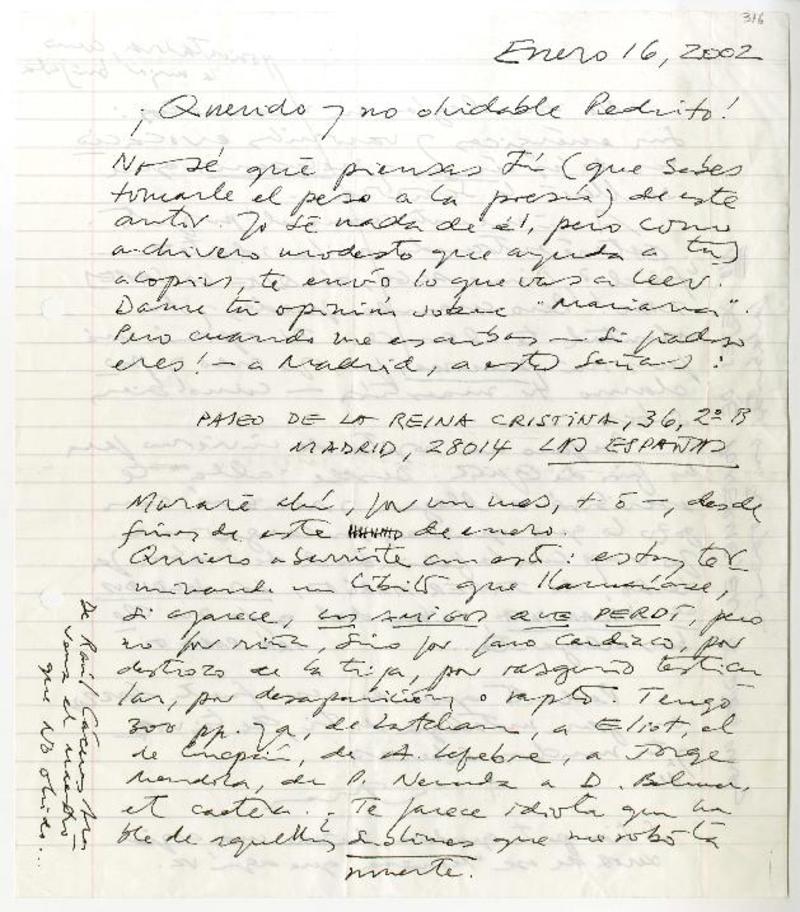 316
Enero 16, 2002
¡Querido y no olvidable Pedrito!
No sé qué piensas Tú (que sabes
tomarle el peso a la poesía) de este
autor. Yo sé nada de él, pero como
archivero modesto que ayuda a tus
acopios, te envío lo que vas a leer.
Dame tu opinión sobre "Mariana".
Pero cuando me escribas — si piadoso
eres! — a Madrid, a estas señas:
PASEO DE LA REINA CRISTINA, 36, 2º B
MADRID, 28014 LAS ESPAÑAS
Moraré ahí, por un mes, + ó -, desde
fines de este de enero.
Quiero aburrirte con esto: estoy ter
minando un librito que llamaríase,
si aparece, LOS AMIGOS QUE PERDÍ, pero
no por riña, sino por paro cardíaco, por
destrozo de la tripa, por rasguño testicu
lar, por desaparición o rapto. Tengo
300 pp. ya, de Latcham, a Eliot, el
de , de A. Lefebre, a Jorge
Mendoza, de P. Neruda a D. Belmar,
et caetera. Te parece idiota que ha
ble de aquellos sublimes que me robó la
muerte.
De Raúl
para el maestro
que NO olvido...